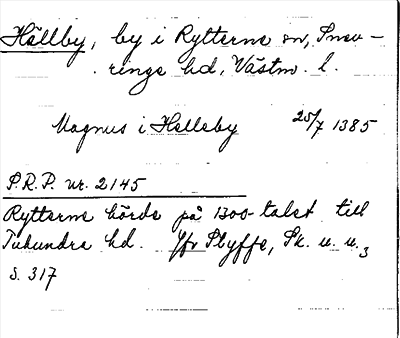 Hällby, by i Rytterne sn, Snev-
ringe hd, Västm. l.
Magnus i Helleby 25/7 1385
P.R.P. nr. 2145
Rytterne hörde på 1300-talet till
Tuhundra hd. Jfr Styffe, Sk. u. u.3
s. 317